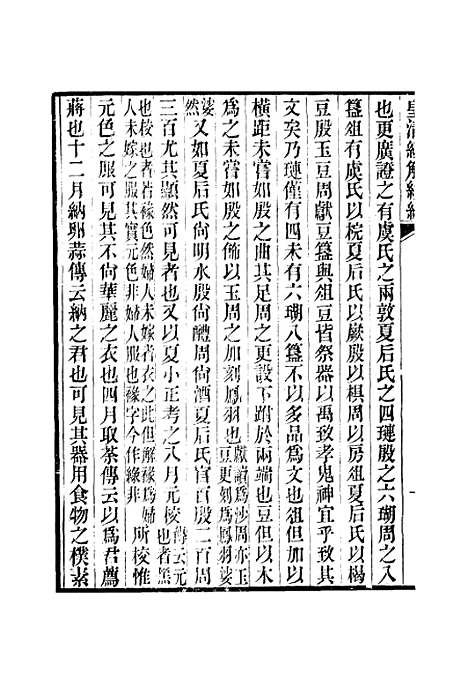 皇清經解續編
也更廣證之有虞氏之兩敦夏后氏之四璉殷之六瑚周之八
簋俎有虞氏以梡夏后氏以嶡殷以椇周以房俎夏后氏以楬
豆殷玉豆周獻豆簋與俎豆皆祭器以禹致孝鬼神宜乎致其
文矣乃璉僅有四未有六瑚八簋不以多品爲文也俎但加以
橫距未嘗如殷之曲其足周之更設下跗於兩端也豆但以木
爲之未嘗如殷之飾以玉周之加刻鳳羽也獻讀爲沙周亦玉豆更刻爲鳳羽婆
娑然又如夏后氏尙明水殷尙醴周尙酒夏后氏官百殷二百周
三百尤其顯然可見者也又以夏小正考之八月元校傳云元也者黑
也校也者若綠色然婦人未嫁者衣之此但解綠爲婦人未嫁之服其實元色非婦人服也綠字今作緣非所校惟
元色之服可見其不尙華麗之衣也四月取荼傳云以爲君薦
蔣也十二月納卵蒜傳云納之君也可見其器用食物之樸素